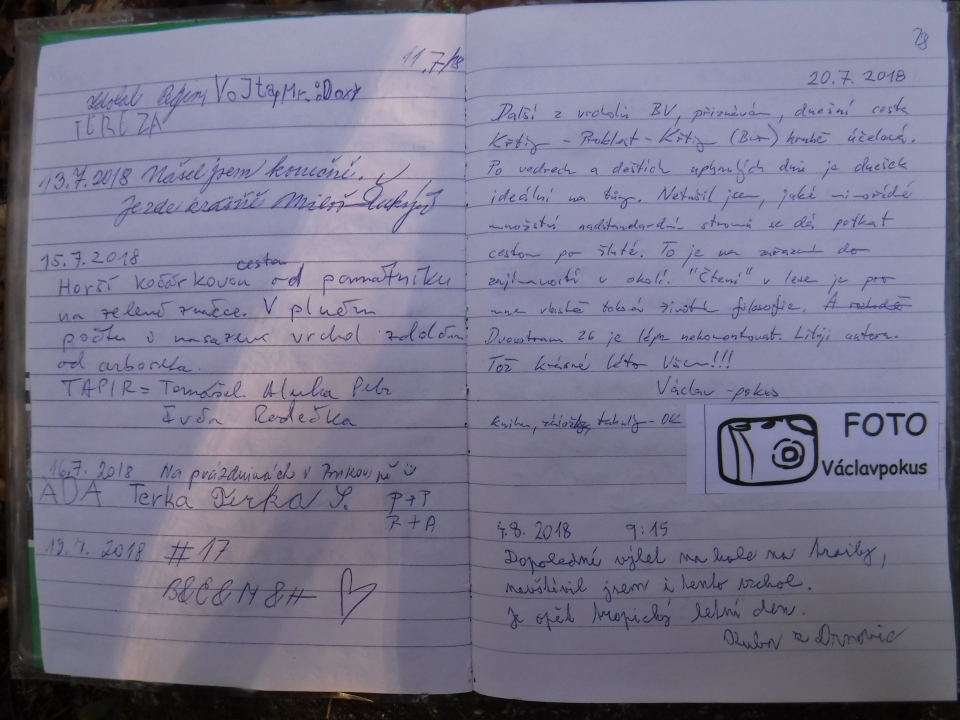 11.7/18
VoJta, Mr.:Doxx
TEREZA
13.7.2018 Našel jsem konečně.
Je zde krásně Miloš
15.7.2018
cesta
Horší kočárkovou od památníku
na zelené značce. V plném
počtu i nasazení vrchol zdolán
od arboreta.
TAPIR = Tomášek Alenka Petr
Ivča Radečka
16.7. 2018 Na prázdninách v
ADA Terka Terka S. P+T
R+A
19.7. 2018 #17
B&E&N&H
78
20.7. 2018
Další z vrcholů BV, přiznávám, dnešní cesta
Křtiny - Proklest - Křtiny (Bus) hrubě účelová.
Po vedrech a deštích uplynulých dnů je dnešek
ideální na túry. Netušil jsem, jaké
množství nadstandardní stromů se dá potkat
cestou po žluté. To je na zařazení do
zajímavostí v okolí. "Čtení" v lese je pro
mne vlastně taková životní filosofie.
Dvoustranu 26 je lépe nekomentovat. Lituji autora.
Tož krásné léto Všem!!!
Václav-pokus
kniha, tabulky - OK
FOTO
Václavpokus
4.8. 2018 9:15
Dopolední výlet na kole na traily,
navštívil jsem i tento vrchol.
Je opět tropický letní den.
Kuba z Drnovic